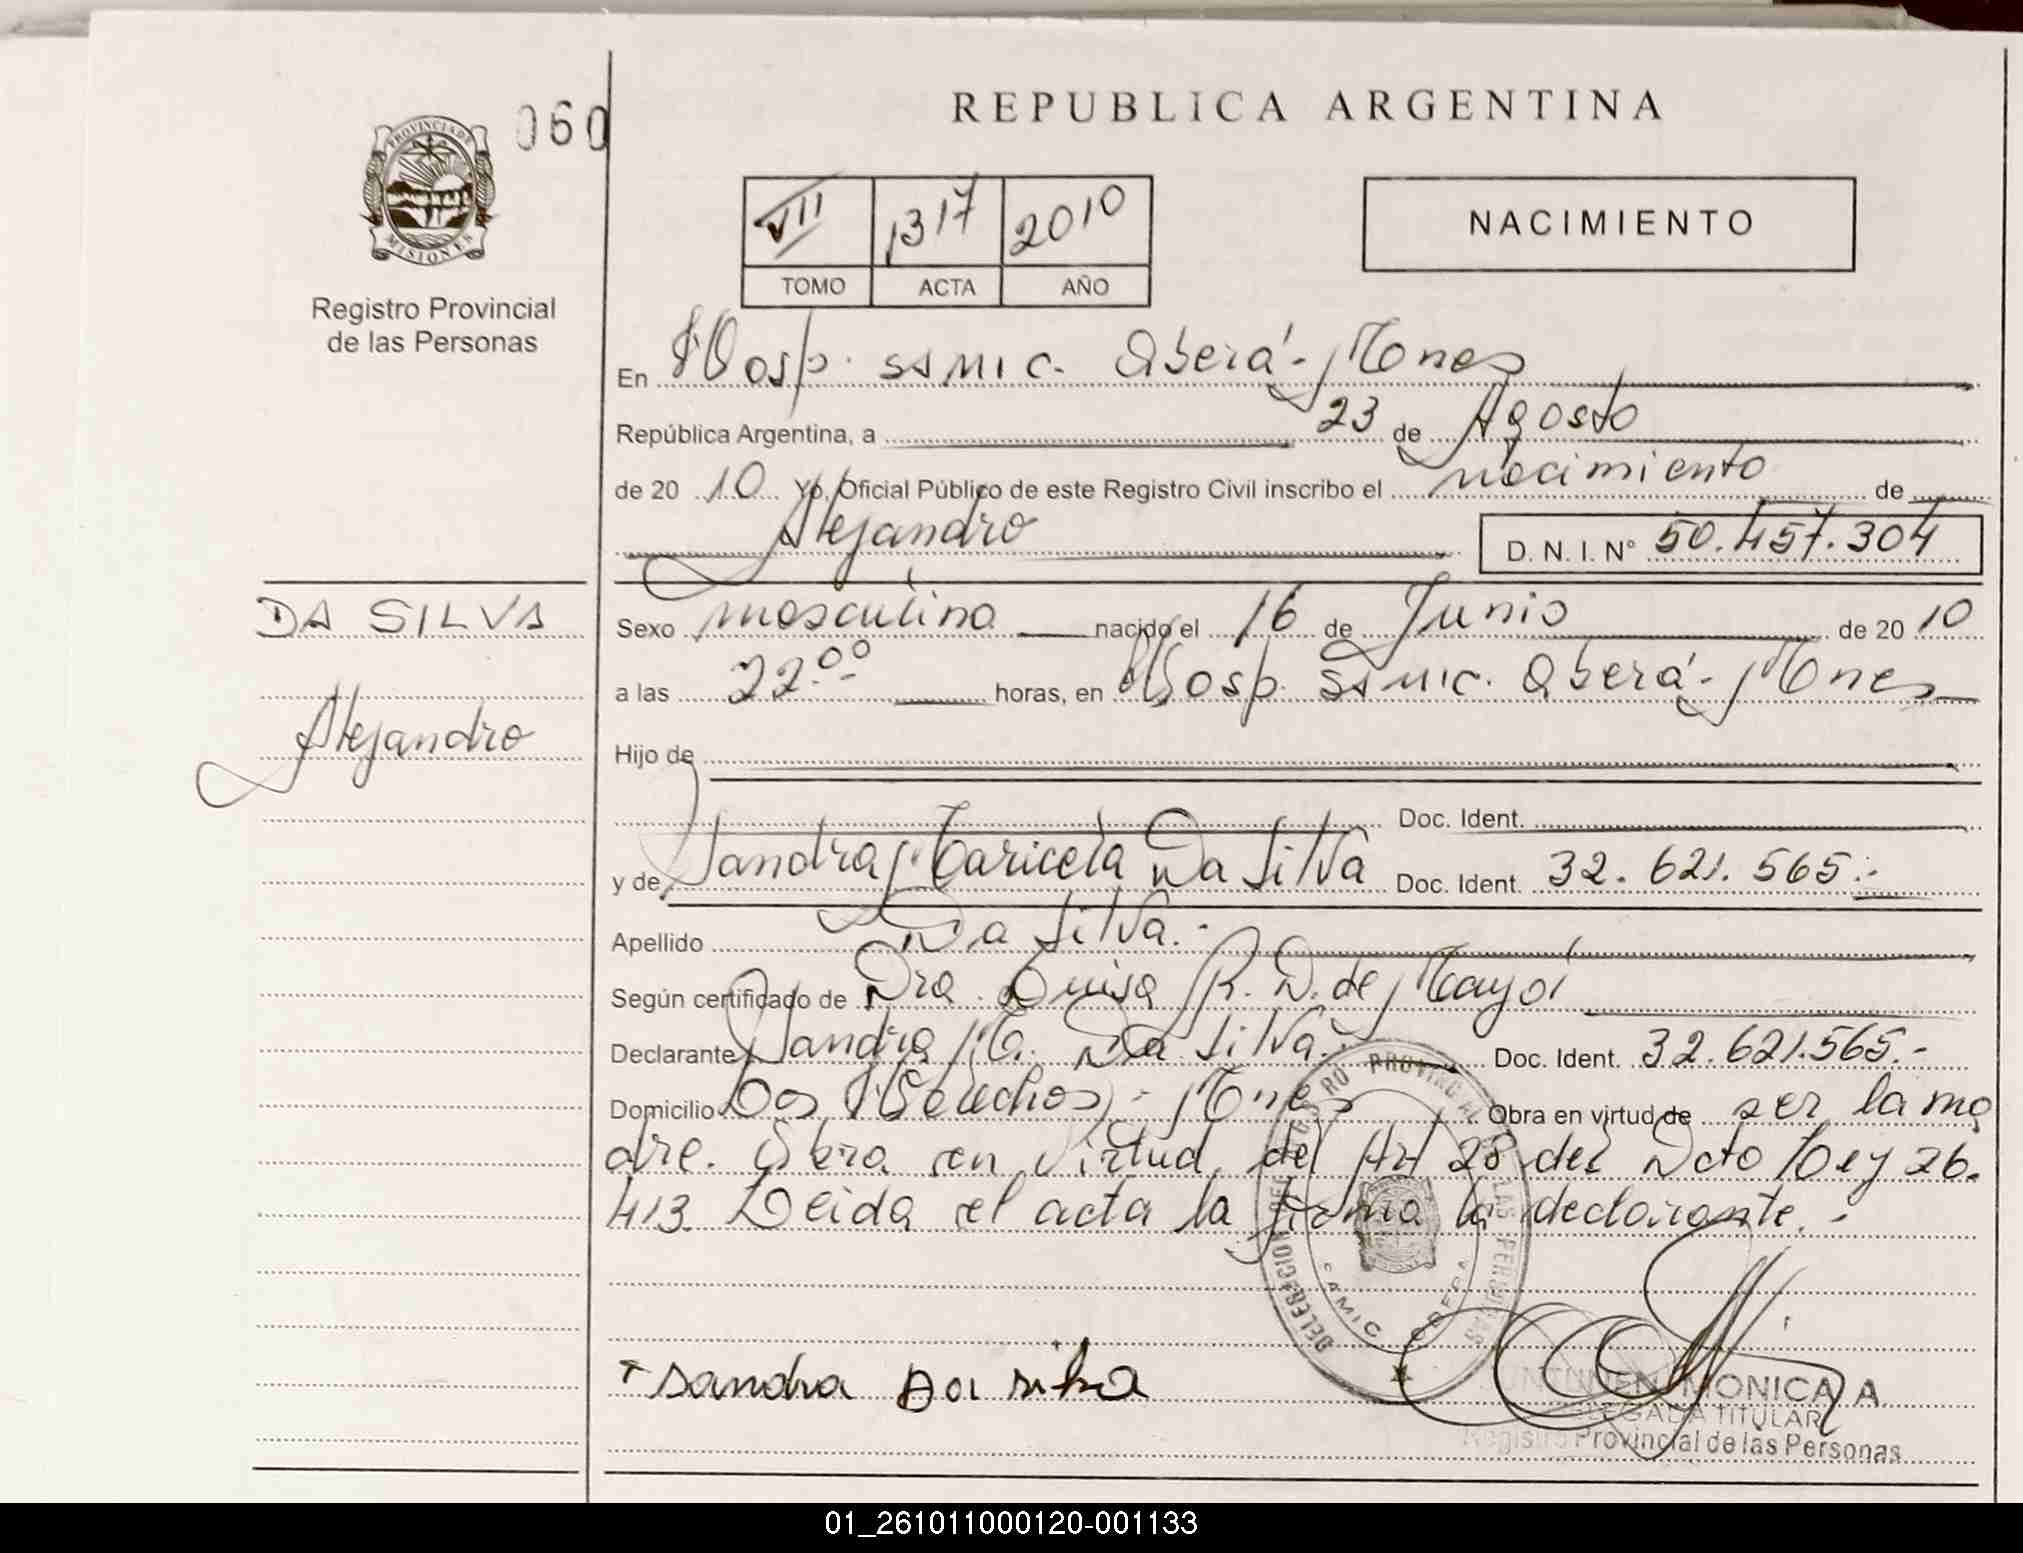 060
REPUBLICA ARGENTINA
PROVINCIA DE
MISIONES
Registro Provincial
de las Personas
VII 1317 2010
TOMO ACTA AÑO
NACIMIENTO
En Hosp. SAMIC. Oberá - Mnes
República Argentina, a 23 de Agosto
de 20 10 Yo, Oficial Público de este Registro Civil inscribo el nacimiento de
Alejandro D. N. I. N° 50.457.304
DA SILVA
Alejandro
Sexo masculino nacido el 16 de Junio de 20 10
a las 22.00 horas, en Hosp. SAMIC. Oberá - Mnes
Hijo de
Doc. Ident.
y de Sandra Maricela Da Silva Doc. Ident. 32.621.565.-
Apellido Da Silva.-
Según certificado de Dra. Luisa R. D. de
Declarante Sandra M. Da Silva.- Doc. Ident. 32.621.565.-
Domicilio Los Helechos - Mnes Obra en virtud de ser la ma
dre. Obra en virtud del Art 28 del Dcto Ley 26.
413. Leida el acta la firma la declarante.-
REGISTRO PROVINCIAL DE LAS PERSONAS
DELEGACION
SAMIC OBERA
Sandra Da silva
MONICA A
DELEGADA TITULAR
Registro Provincial de las Personas
01_261011000120-001133